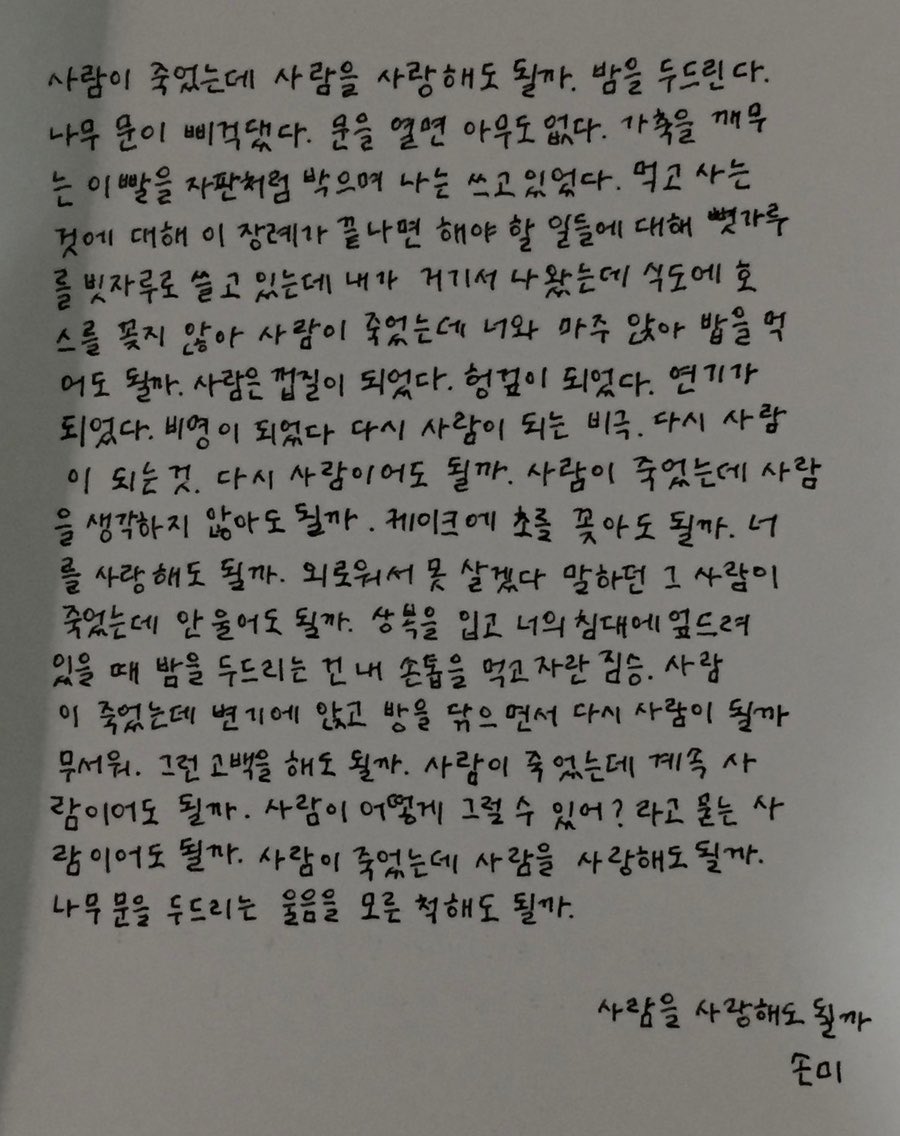 사람이 죽었는데 사람을 사랑해도 될까. 밤을 두드린다.
나무 문이 삐걱댔다. 문을 열면 아무도 없다. 가축을 깨무
는 이빨을 자판처럼 박으며 나는 쓰고 있었다. 먹고 사는
것에 대해 이 장례가 끝나면 해야 할 일들에 대해 뼛가루
를 빗자루로 쓸고 있는데 내가 거기서 나왔는데 식도에 호
스를 꽂지 않아 사람이 죽었는데 너와 마주 앉아 밥을 먹
어도 될까. 사람은 껍질이 되었다. 헝겊이 되었다. 연기가
되었다. 비명이 되었다 다시 사람이 되는 비극. 다시 사람
이 되는 것. 다시 사람이어도 될까. 사람이 죽었는데 사람
을 생각하지 않아도 될까. 케이크에 초를 꽂아도 될까. 너
를 사랑해도 될까. 외로워서 못 살겠다 말하던 그 사람이
죽었는데 안 울어도 될까. 상복을 입고 너의 침대에 엎드려
있을 때 밤을 두드리는 건 내 손톱을 먹고 자란 짐승. 사람
이 죽었는데 변기에 앉고 방을 닦으면서 다시 사람이 될까
무서워. 그런 고백을 해도 될까. 사람이 죽었는데 계속 사
람이어도 될까. 사람이 어떻게 그럴 수 있어? 라고 묻는 사
람이어도 될까. 사람이 죽었는데 사람을 사랑해도 될까.
나무 문을 두드리는 울음을 모른 척해도 될까.
사람을 사랑해도 될까
손미